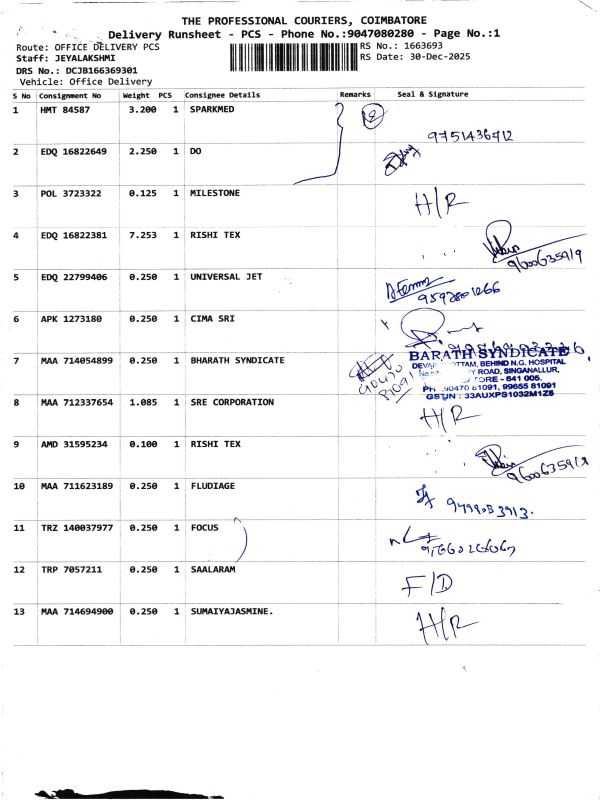 THE PROFESSIONAL COURIERS, COIMBATORE
Delivery Runsheet - PCS - Phone No.:9047080280 - Page No.:1
Route: OFFICE DELIVERY PCS RS No.: 1663693
Staff: JEYALAKSHMI RS Date: 30-Dec-2025
DRS No.: DCJB166369301
Vehicle: Office Delivery
S No Consignment No Weight PCS Consignee Details Remarks Seal & Signature
1 HMT 84587 3.200 1 SPARKMED
9751436912
2 EDQ 16822649 2.250 1 DO
3 POL 3723322 0.125 1 MILESTONE H/R
4 EDQ 16822381 7.253 1 RISHI TEX
9600635919
5 EDQ 22799406 0.250 1 UNIVERSAL JET
6 APK 1273180 0.250 1 CIMA SRI
7 MAA 714054899 0.250 1 BHARATH SYNDICATE
BARATH SYNDICATE
BEHIND N.G. HOSPITAL
ROAD, SINGANALLUR,
641 005.
99655 81091
GSTIN : 33AUXPS1032M1Z6
8 MAA 712337654 1.085 1 SRE CORPORATION H/R
9 AMD 31595234 0.100 1 RISHI TEX
9600635919
10 MAA 711623189 0.250 1 FLUDIAGE
11 TRZ 140037977 0.250 1 FOCUS
12 TRP 7057211 0.250 1 SAALARAM F/D
13 MAA 714694900 0.250 1 SUMAIYAJASMINE. H/R